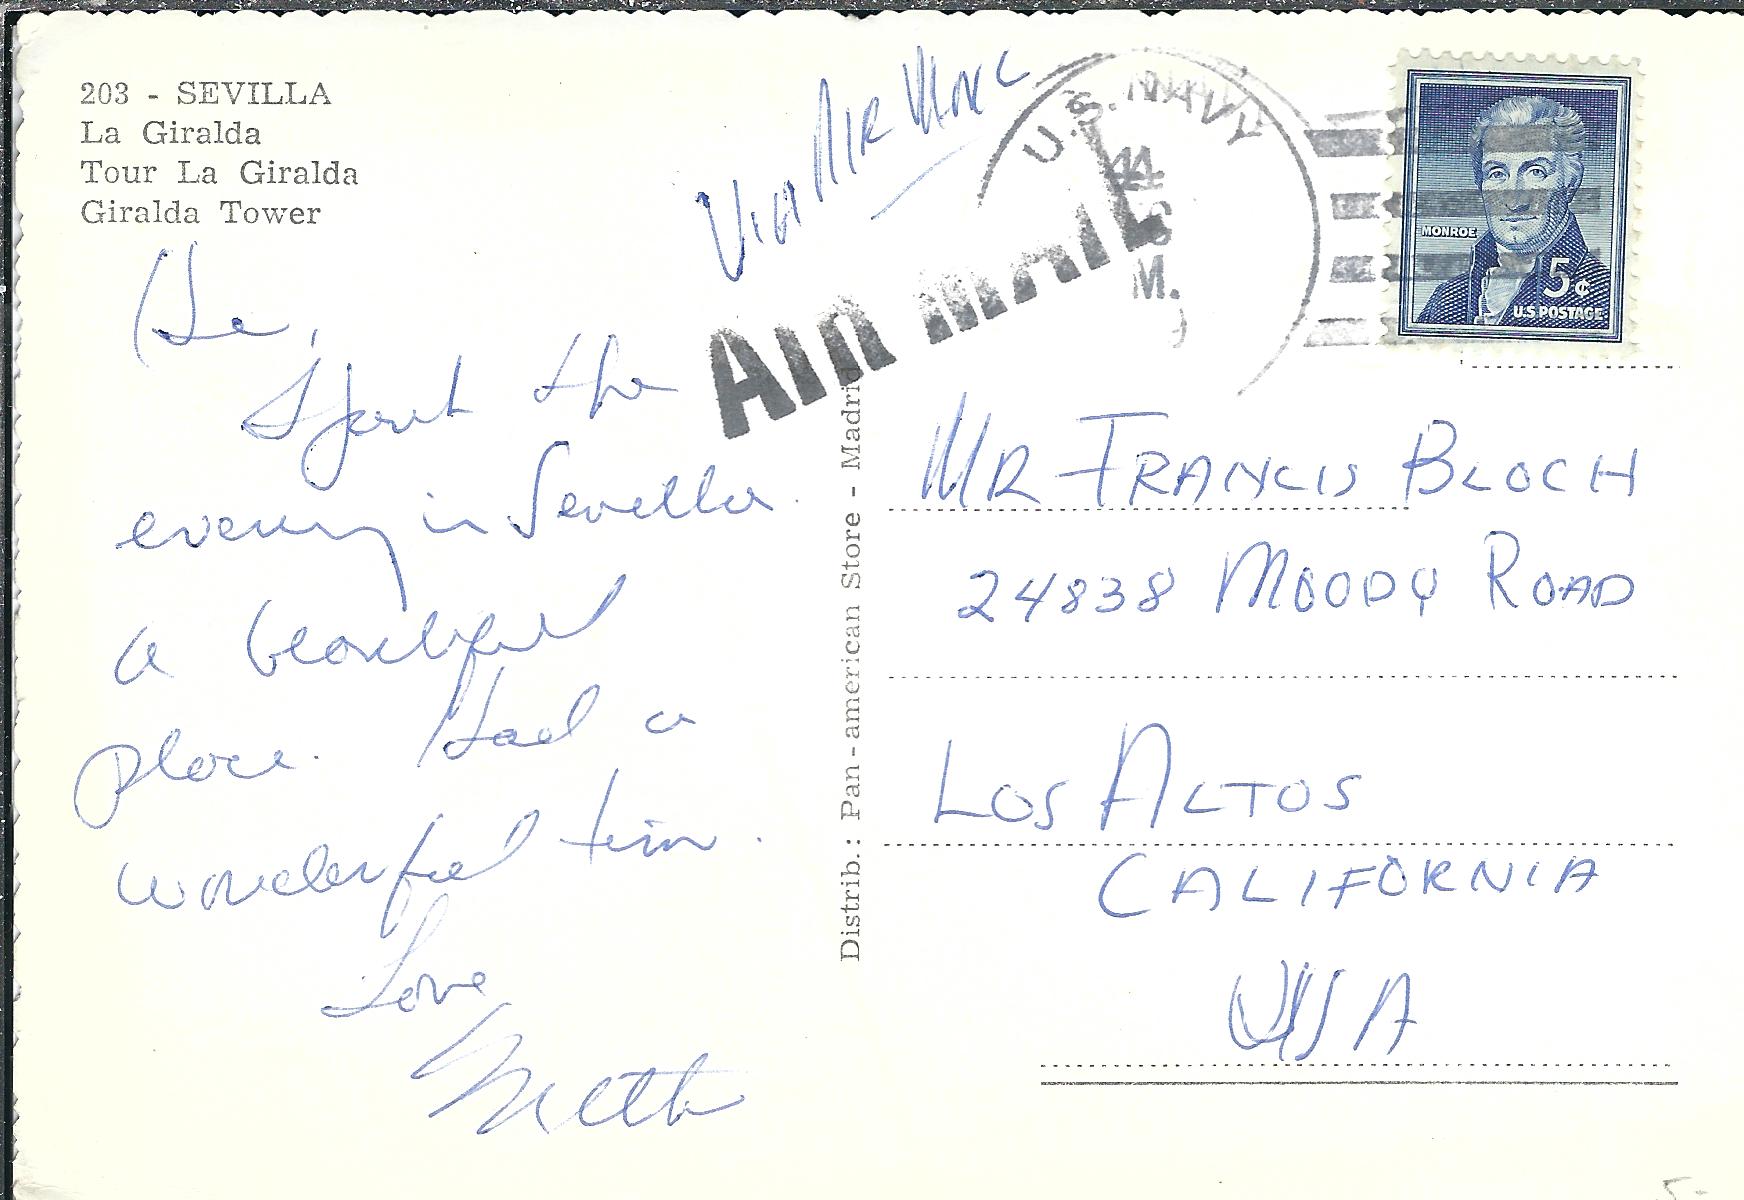 203 - SEVILLA
La Giralda
Tour La Giralda
Giralda Tower
VIA AIR MAIL
AIR MAIL
U.S. NAVY
M.
MONROE
5¢
U.S. POSTAGE
Spent the
evening in Sevilla.
a beautiful
place. Had a
wonderful time.
Love
Distrib.: Pan-american Store - Madrid
MR FRANCIS BLOCH
24838 MOODY ROAD
LOS ALTOS
CALIFORNIA
USA